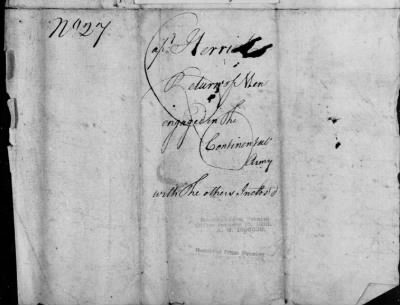 No 27
Capt. Herrick
Return of Men
engaged in The
Continental
Army
with The others Inclos'd